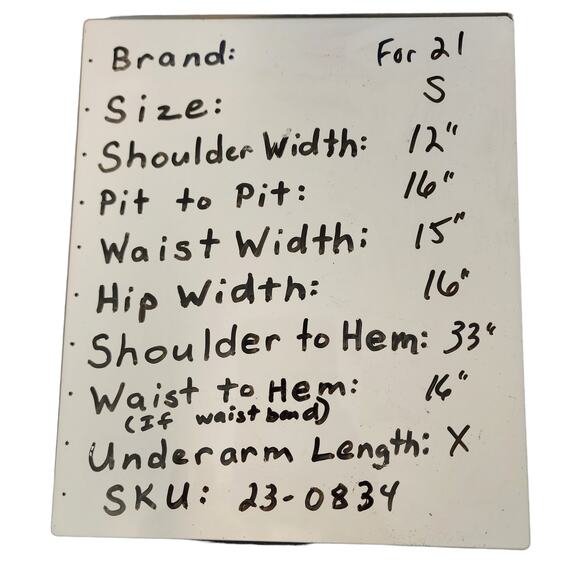 · Brand: For 21
· Size: S
· Shoulder Width: 12"
· Pit to Pit: 16"
· Waist Width: 15"
· Hip Width: 16"
· Shoulder to Hem: 33"
· Waist to Hem: 16"
(If waistband)
· Underarm Length: X
· SKU: 23-0834